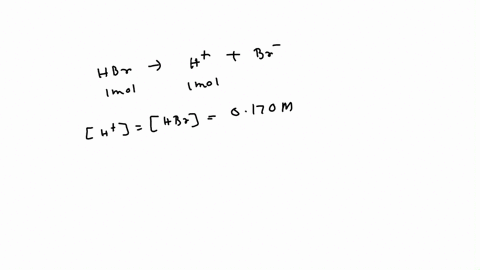 HBr → H⁺ + Br⁻
1mol 1mol
[H⁺] = [HBr] = 0.170 M